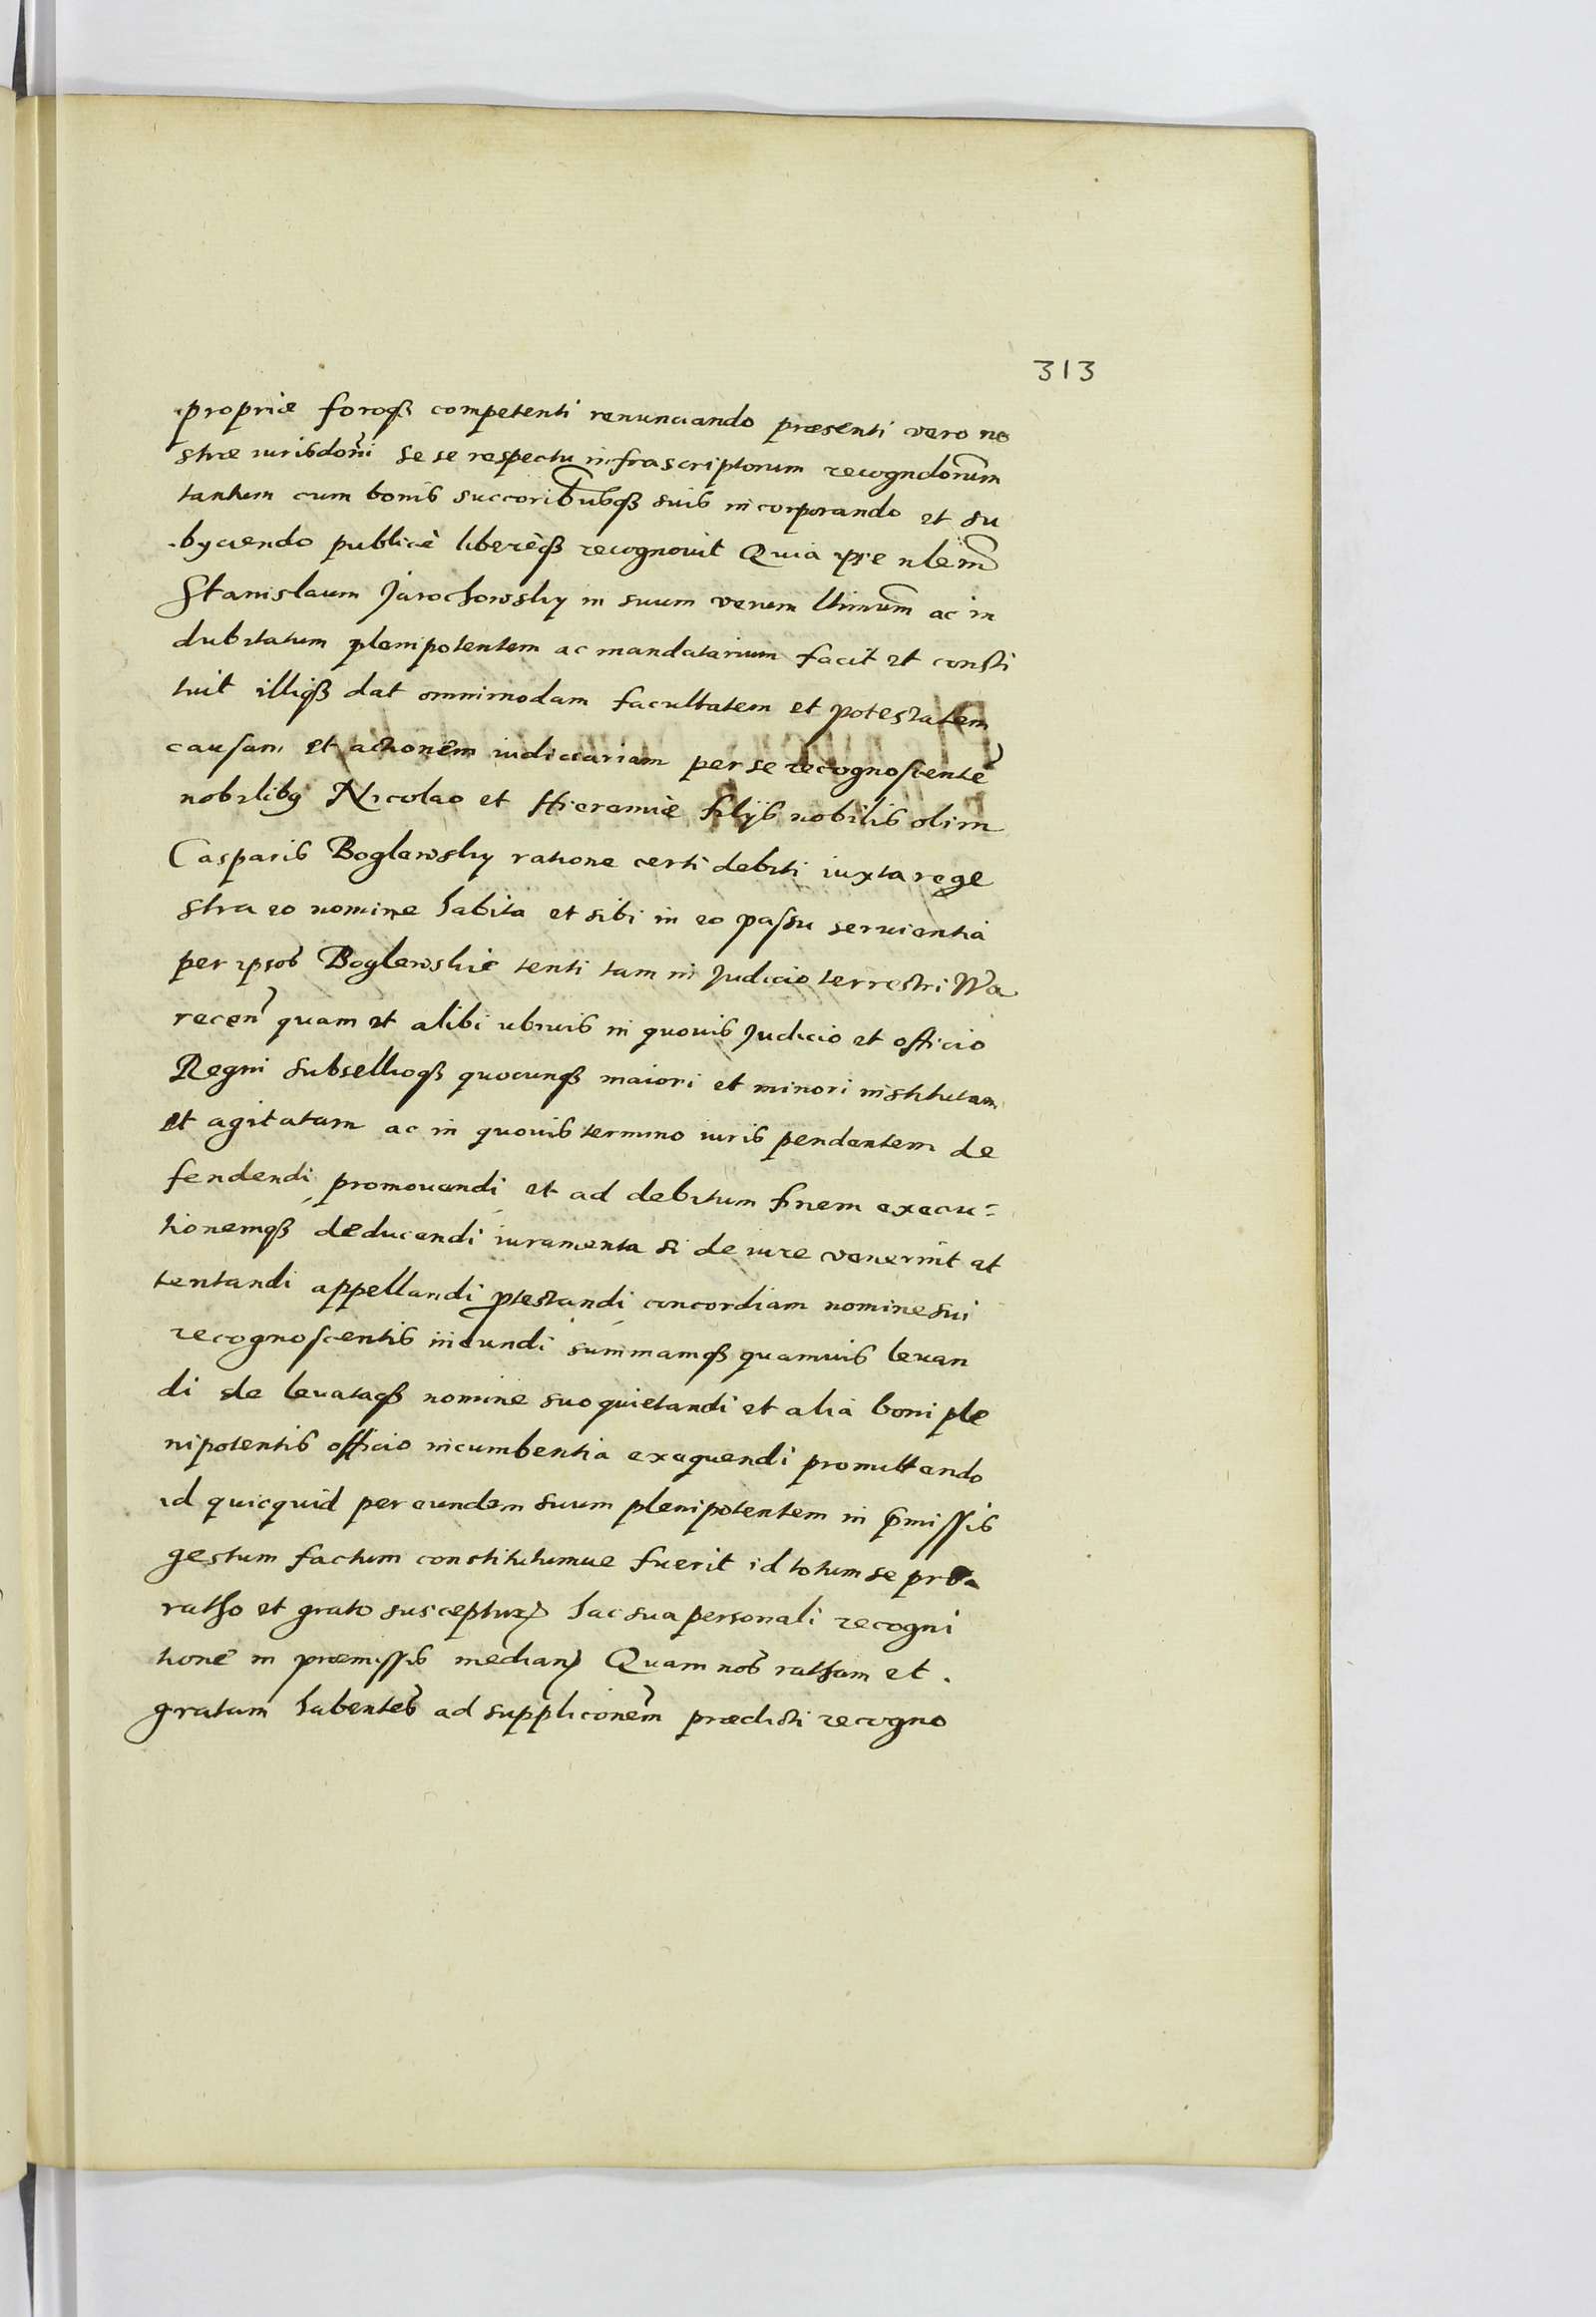 313
propriæ foroq3 competenti renunciando præsenti vero no
stræ iurisdoni sese respectu infrascriptorum recogndonum
tantum cum bonis succoribusq3 suis incorporando et su
byciendo publicè liberèq3 recognovit Quia ipse nlem
Stanislaum Jarochowsky in suum verum ltimum ac in
dubitatum plenipotentem ac mandatarium facit et consti
tuit illiq3 dat omnimodam facultatem et potestatem
causam et actionem iudiciariam per se recognoscente
nobilib9 Nicolao et Hieremiæ filijs nobilis olim
Casparis Boglewsky ratione certi debiti iuxta rege
stra eo nomine habita et sibi in eo passu servientia
per ipsos Boglewskie tenti tam in Judicio terrestri Wa
recen quam et alibi ubivis in quovis Judicio et officio
Regni subsellioq3 quocunq3 maiori et minori institutam
et agitatam ac in quovis termino iuris pendentem de
fendendi promovendi et ad debitum finem execu=
tionemq3 deducendi iuramenta si de iure venerint at
tentandi appellandi ptestandi concordiam nomine sui
recognoscentis ineundi summamq3 quamvis levan
di de levataq3 nomine suo quietandi et alia boni ple
nipotentis officio incumbentia exequendi promittendo
id quicquid per eundem suum plenipotentem in pmissis
gestum factum constitutumve fuerit id totum se pro
ratho et grato suscepturum hac sua personali recogni
tione in præmissis median Quam nos ratham et.
gratam habentes ad supplicionem prædicti recogno